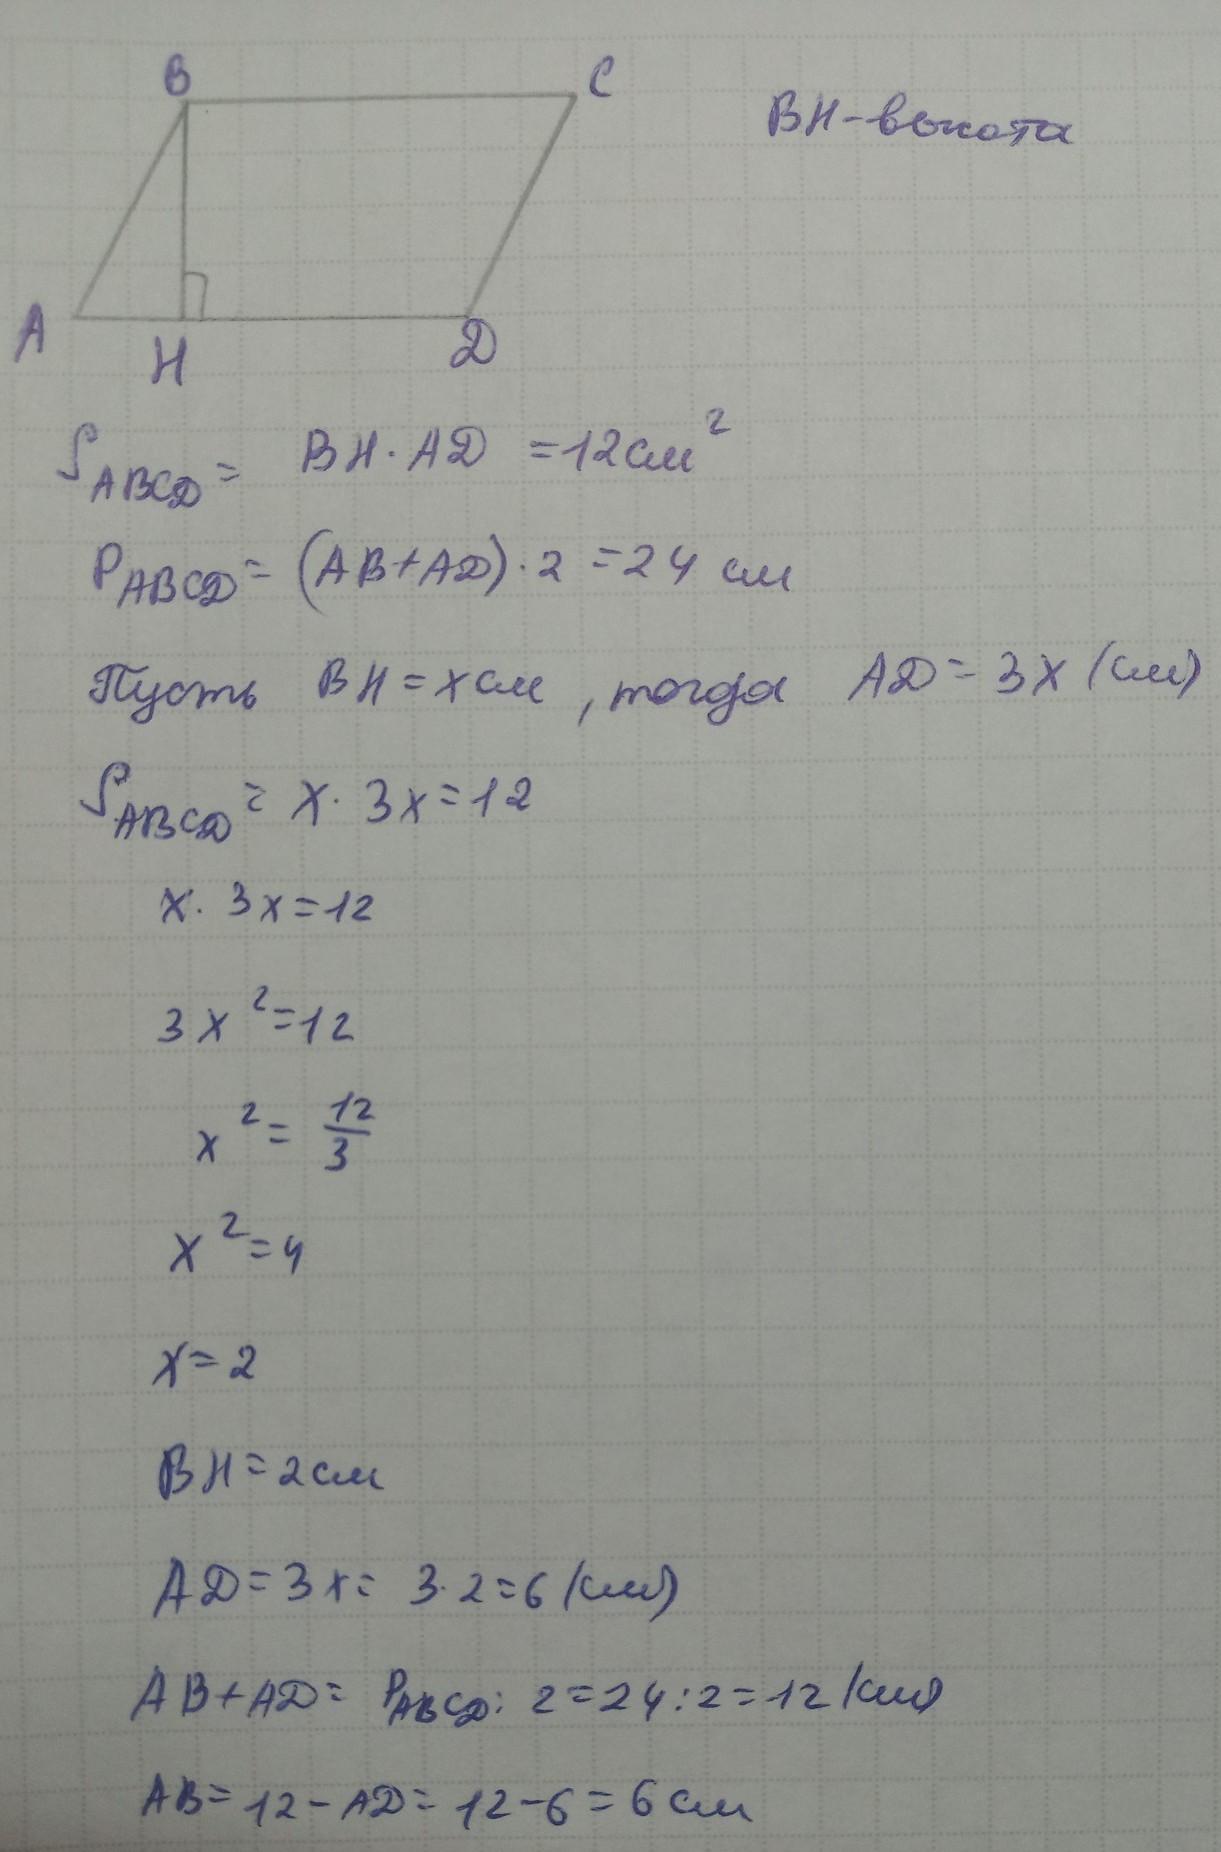 B
C
BH-высота
A
H
D
S ABCD = BH·AD = 12см²
P ABCD = (AB+AD)·2 = 24 см
Пусть BH = x см, тогда AD = 3x (см)
S ABCD = x·3x = 12
x·3x = 12
3x² = 12
x² = 12/3
x² = 4
x = 2
BH = 2см
AD = 3x = 3·2 = 6 (см)
AB+AD = P ABCD : 2 = 24 : 2 = 12 (см)
AB = 12 - AD = 12 - 6 = 6 см